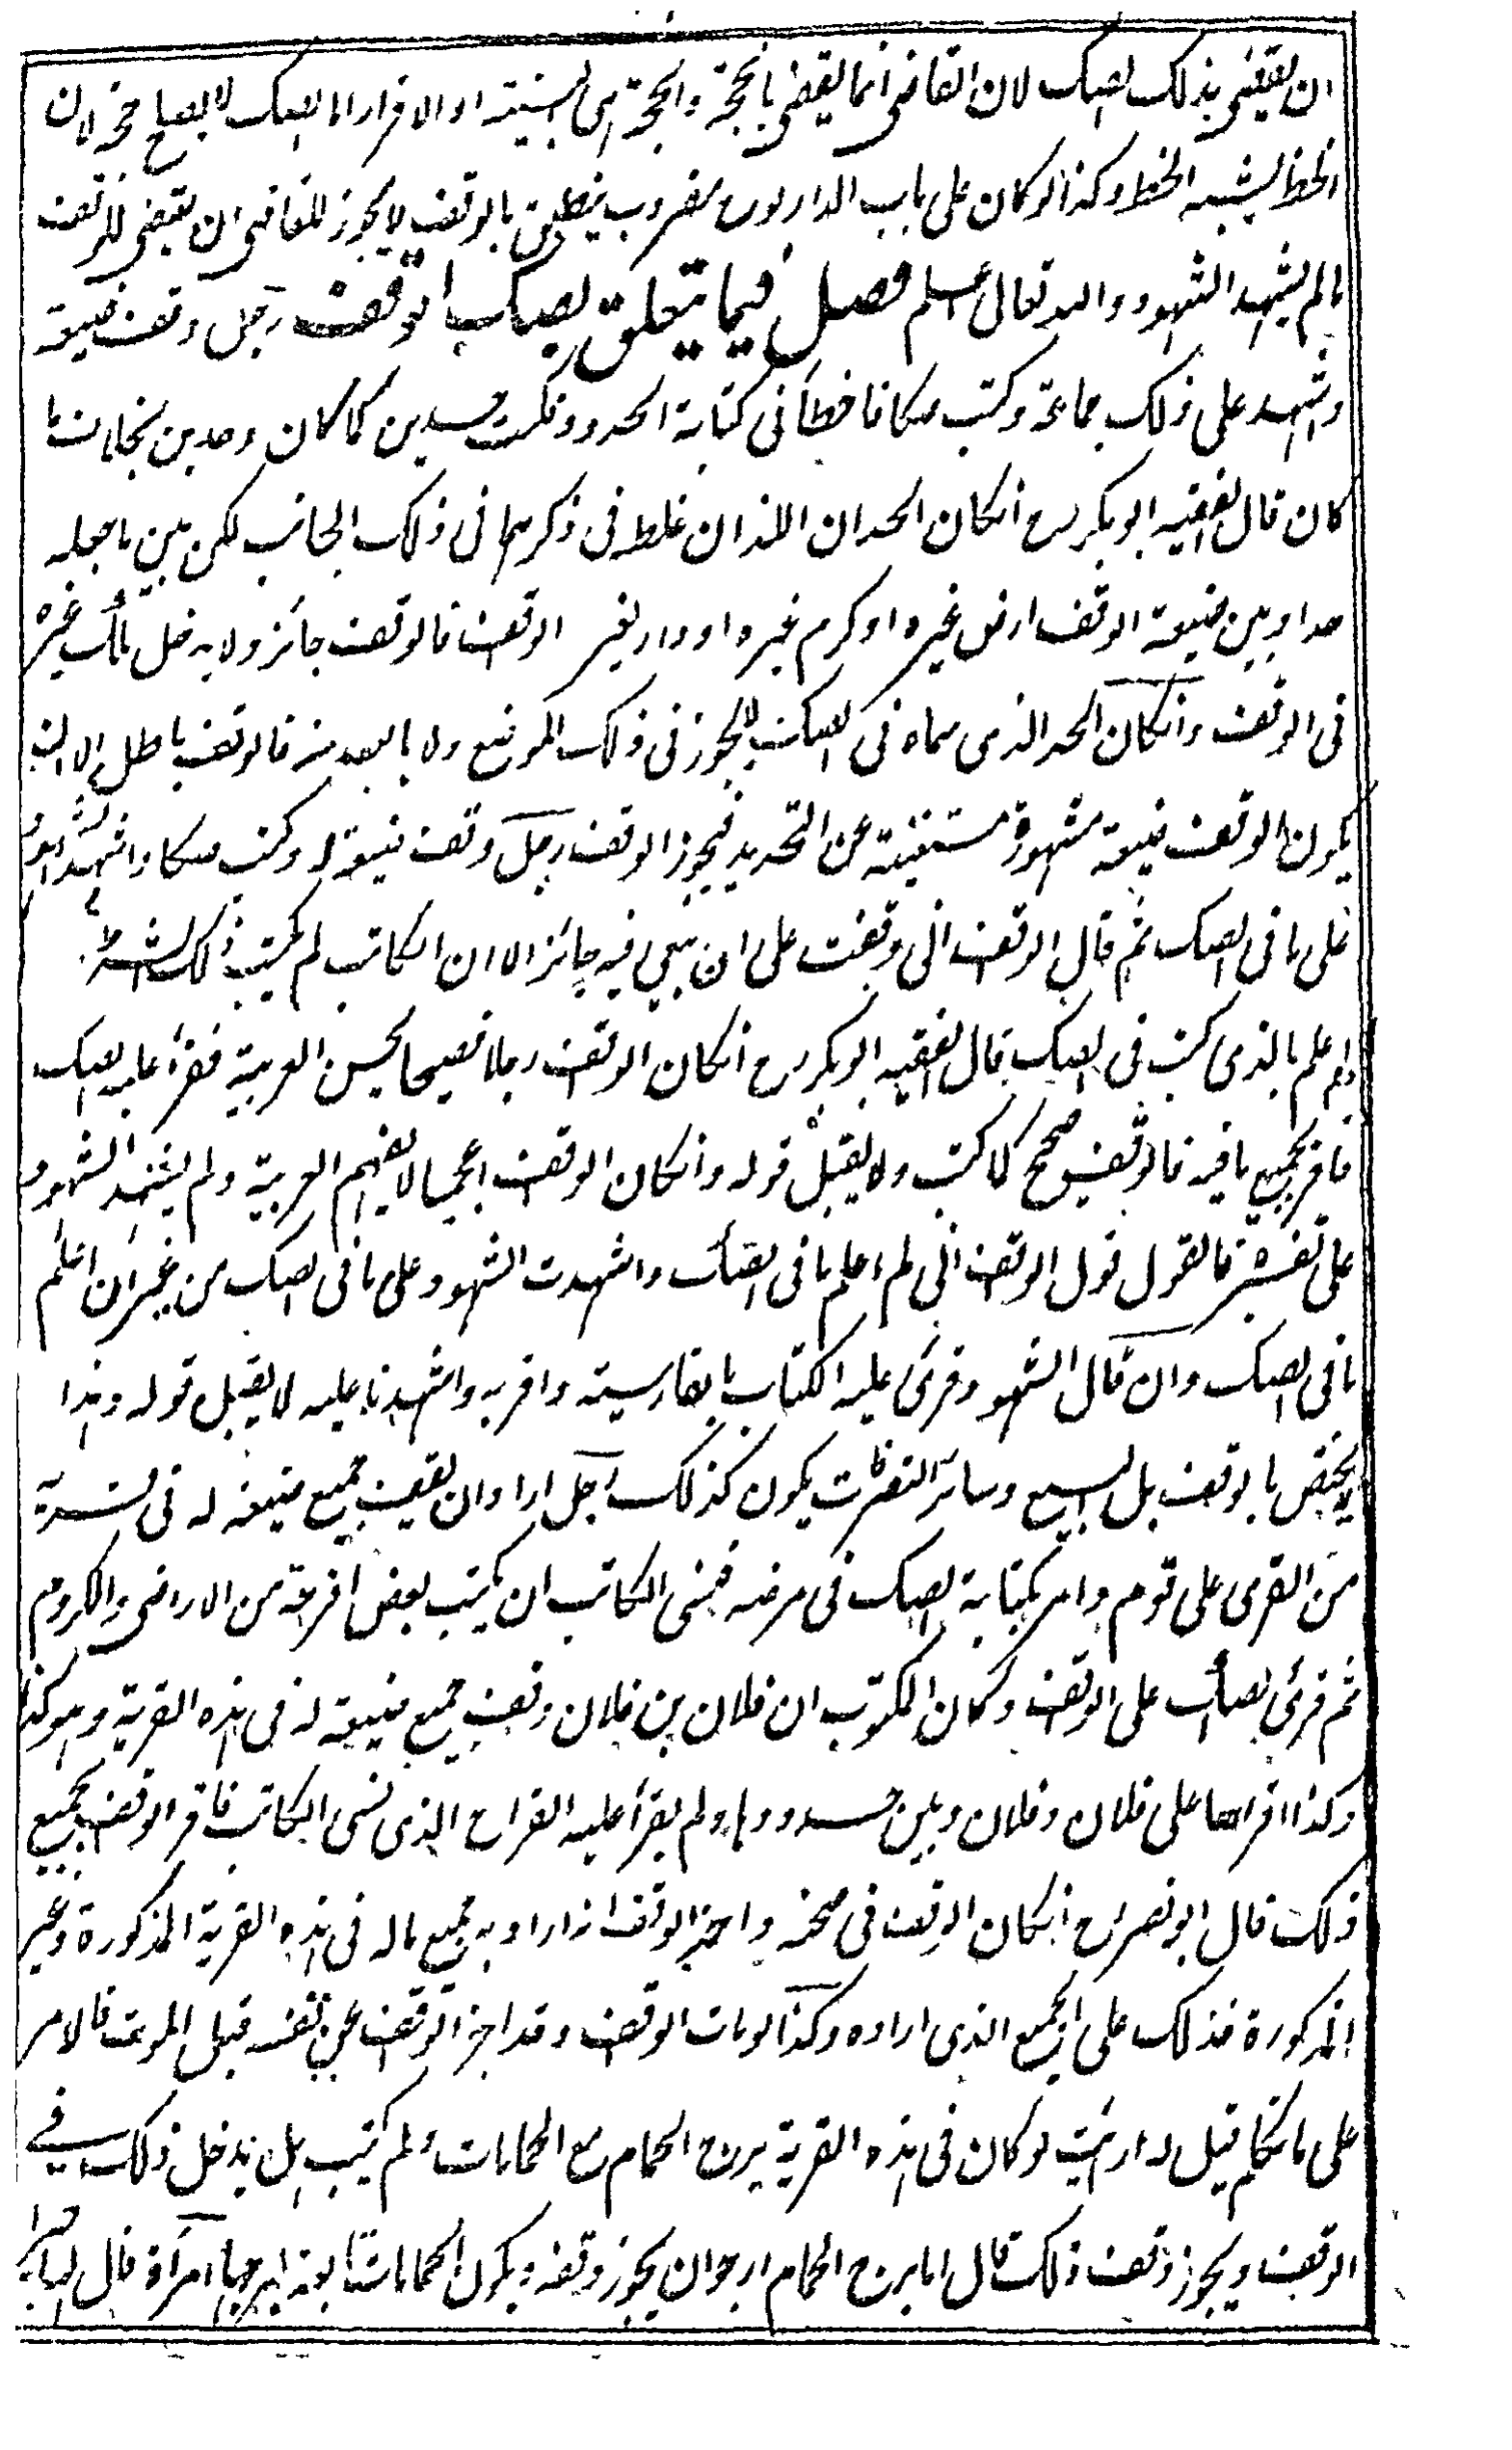 ان يقضى بذلك الصك لان القاضى انما يقضى بالحجة والحجة هى البينة او الاقرار اما الصك لا يصلح حجة لان
الخط يشبه الخط وكذا لو كان على باب الدار لوح مضروب ينطق بالوقف لا يجوز للقاضى ان يقضى بالوقف
ما لم يشهد الشهود والله تعالى اعلم فصل فيما يتعلق بصك الوقف رجل وقف ضيعة
واشهد على ذلك جماعة وكتب صكا فاخطأ فى كتابة الحدود فكتب حدين كما كان وحدين بخلاف ما
كان قال الفقيه ابو بكر رح انكان الحدان اللذان غلط فى ذكرهما فى ذلك الجانب لكن بين ما جعله
حدا وبين ضيعة الوقف ارض غيره او كرم غيره او دار لغير الوقف فالوقف جائز ولا يدخل ملك غيره
فى الوقف وانكان الحد الذى سماه فى الصك لا يجوز فى ذلك الموضع ولا بالبعد منه فالوقف باطل الا ان
يكون الوقف ضيعة مشهورة مستغنية عن التحديد فيجوز الوقف رجل وقف ضيعة له وكتب صكا واشهد الشهود
على ما فى الصك ثم قال الوقف انى وقفت على ان بيعى فيه جائز الا ان الكاتب لم يكتب ذلك الشرط
ولم اعلم بالذى كتب فى الصك قال الفقيه ابو بكر رح انكان الوقف رجلا فصيحا يحسن العربية فقرأ عليه الصك
فاقر بجميع ما فيه فالوقف صحيح كما كتب ولا يقبل قوله وانكان الوقف اعجميا لا يفهم العربية ولم يشهد الشهود
على تفسيره فالقول قول الوقف انى لم اعلم ما فى الصك واشهدت الشهود على ما فى الصك من غير ان اعلم
ما فى الصك وان قال الشهود قرئ عليه الكتاب بالفارسية واقر به واشهدنا عليه لا يقبل قوله وهذا
لا يختص بالوقف بل البيع وسائر التصرفات يكون كذلك رجل اراد ان يقف جميع ضيعة له فى قرية
من القرى على قوم وامر بكتابة الصك فى مرضه فنسى الكاتب ان يكتب بعض اقرحة من الاراضى والكروم
ثم قرئ الصك على الوقف وكان المكتوب ان فلان بن فلان وقف جميع ضيعة له فى هذه القرية وهو كذا
وكذا اقراحا على فلان وفلان وبين حدودها ولم يقرأ عليه القراح الذى نسى الكاتب فاقر الوقف بجميع
ذلك قال ابو نصر رح انكان الوقف فى صحته واخبر الوقف انه اراد به جميع ما له فى هذه القرية المذكورة وغير
المذكورة فذلك على الجميع الذى اراده وكذا لو مات الوقف وقد اخبر الوقف عن نفسه قبل الموت فالامر
على ما تكلم قيل له ارأيت لو كان فى هذه القرية برج الحمام مع الحمامات ولم يكتب هل يدخل ذلك فى
الوقف ويجوز وقف ذلك قال اما برج الحمام ارجو ان يجوز وقفه ويكون الحمامات تابعة لبرجها امرأة قال لها